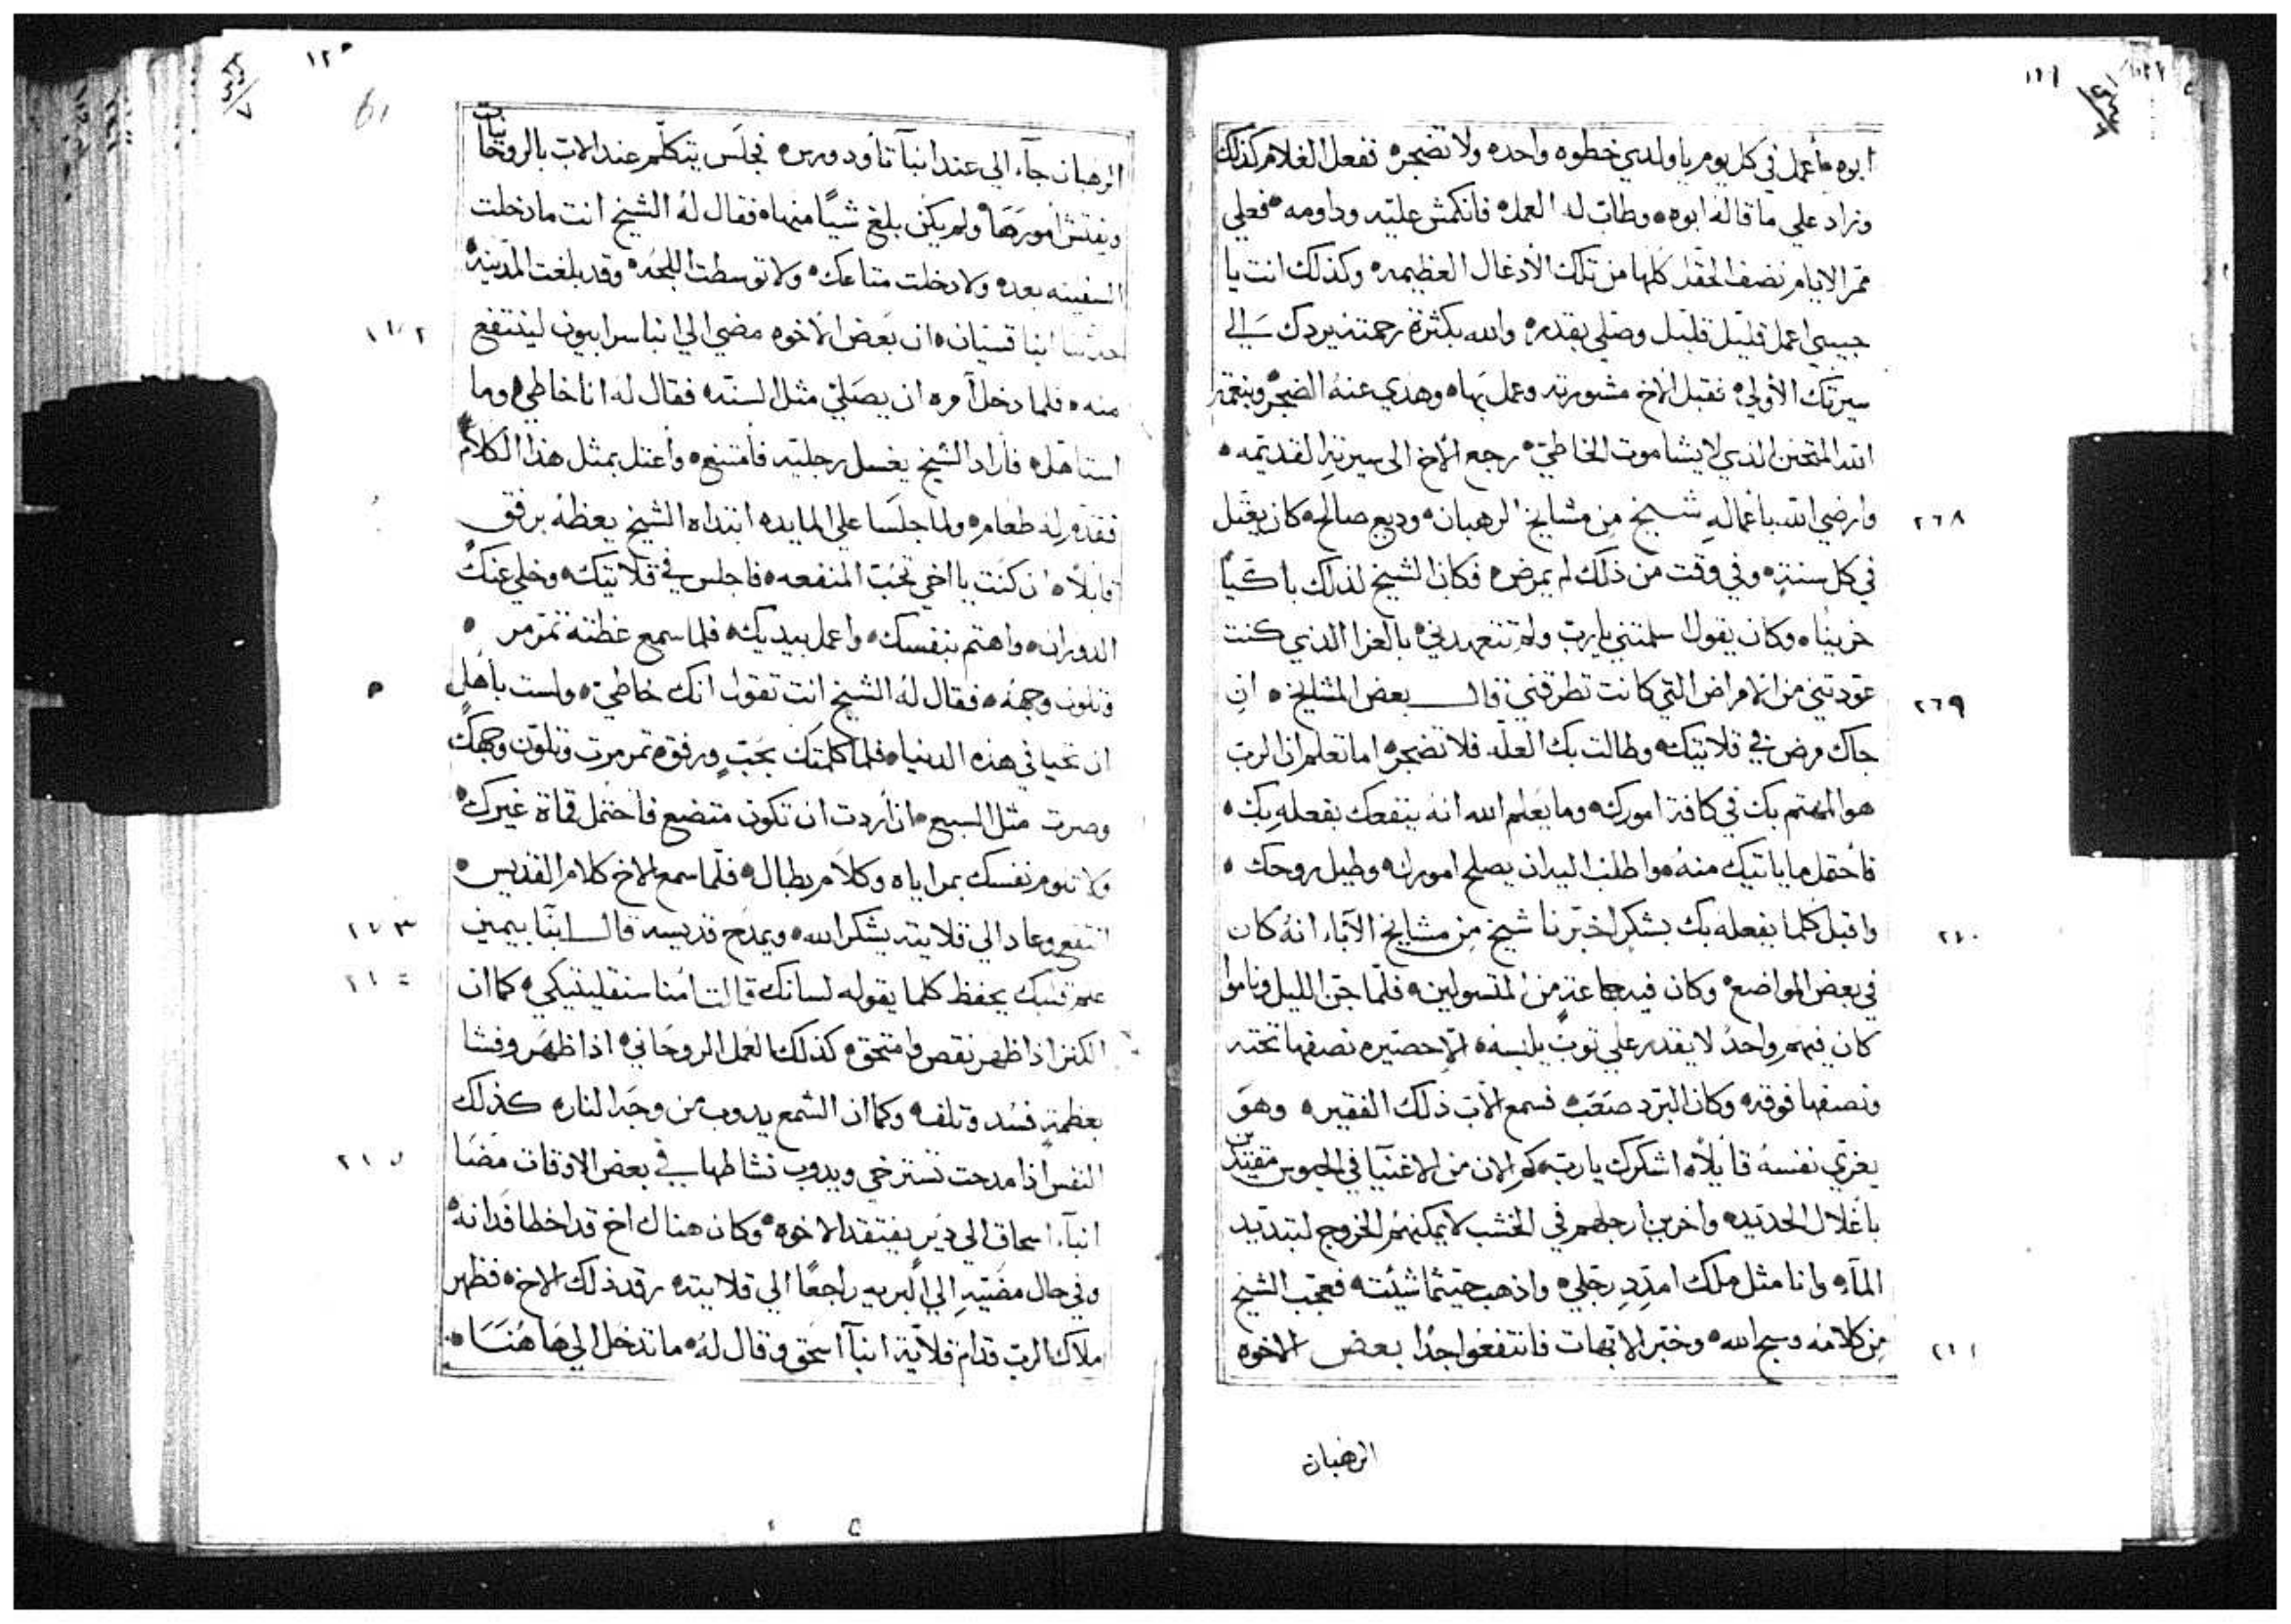 ابوه اعمل في كل يوم يا ولدي خطوه واحده ولا تضجر ففعل الغلام كذلك
وزاد علي ما قاله ابوه وطاب له العمل فانكمش عليه وداومه فعلي
ممر الايام نضف الحقل كلها من تلك الأدغال العظيمه وكذلك انت يا
حبيبي اعمل قليل قليل وصلي بقدر والله بكثرة رحمته يردك الي
سيرتك الأولي فقبل الاخ مشورته وعمل بها وهدي عنه الضجر وبنعمة
الله المتحنن الذي لا يشا موت الخاطي رجع الأخ الى سيرته القديمه
٢٦٨ وارضي الله باعماله شيخ من مشايخ الرهبان وديع صالح كان يعتل
في كل سنة وفي وقت من ذلك لم يمرض فكان الشيخ لذلك باكيًا
حزينًا وكان يقول اسلمتني يارب ولم تتعهدني بالعزا الذي كنت
٢٦٩ عودتني من الامراض التي كانت تطرقني قال بعض المشايخ ان
جاك مرض في قلايتك وطالت بك العلّه فلا تضجر اما تعلم ان الرب
هو المهتم بك في كافة امورك وما يعلم الله انه ينفعك يفعله بك
فأحتمل ما ياتيك منه واطلب اليه ان يصلح امورك وطيل روحك
٢٧٠ واقبل كلما يفعله بك بشكر اخبرنا شيخ من مشايخ الآباء انه كان
في بعض المواضع وكان فيه جماعة من المتسولين فلمّا جن الليل وناموا
كان فيهم واحد لا يقدر علي توب يلبسه الا حصيره نصفها تحته
ونصفها فوقه وكان البرد صعب فسمع الأب ذلك الفقير وهو
يعزي نفسه قايلاً اشكرك يارب كم الان من الاغنيا في الحبوس مقيدين
باغلال الحديد واخرين ارجلهم في الخشب لا يمكنهم الخروج لتبديد
المآء وانا مثل ملك امدد رجلي واذهب حيثما شئت فعجب الشيخ
٢٧١ من كلامه وسبح الله وخبر الابهات فانتفعوا جدًا بعض الاخوه
الرهبان
١٢٥
الرهبان جآء الي عند انبآ تاودورس فجلس يتكلّم عند الاب بالروحانيات
ويفتش امورها ولم يكن بلغ شيًا منها فقال له الشيخ انت ما دخلت
السفينه بعد ولا دخلت متاعك ولا توسطت اللجه وقد بلغت المدينه
٢٧٢ حدثنا انبا قسيان ان بعض الاخوه مضي الي انبا سرابيون لينتفع
منه فلما دخل آمره ان يصلي مثل السنّه فقال له انا خاطي وما
استاهل فأراد الشيخ يغسل رجليه فأمتنع وأعتل بمثل هذا الكلام
فقدم له طعام ولما جلسا علي المايده ابتداه الشيخ يعظه برفق
قايلاً ان كنت يا اخي تحب المنفعه فاجلس في قلايتك وخلي عنك
الدوران واهتم بنفسك واعمل بيديك فلما سمع عظته تمرمر
وتلون وجهه فقال له الشيخ انت تقول انك خاطي ولست بأهل
ان تحيا في هذه الدنيا فلما كلمتك بحب ورفق تمرمرت وتلون وجهك
وصرت مثل السبع ان أردت ان تكون متضع فأحتمل غيرك
ولا تلوم نفسك بمراياه وكلام بطال فلّما سمع الاخ كلام القديس
٢٧٣ انتفع وعاد الي قلايته يشكر الله ويمدح قديسه قال انبآ بيمين
٢٧٤ علم قلبك يحفظ كلما يقوله لسانك قالت امنا سنقليتيكي كما ان
الكنز اذا ظهر نقص وامتحق كذلك العمل الروحاني اذا ظهر وفشا
بعظمة فسد وتلف وكما ان الشمع يدوب من وجه النار كذلك
٢٧٥ النفس اذا مدحت تسترخي ويدوب نشاطها في بعض الاوقات مضا
انبآ اسحاق الي دير يفتقد الاخوه وكان هناك اخ قد اخطا فدانه
وفي حال مضيه الي البريه راجعًا الي قلايته رقد ذلك الاخ فظهر
ملاك الرب قدام قلاية انبآ اسحق وقال له ما تدخل الي هاهنا